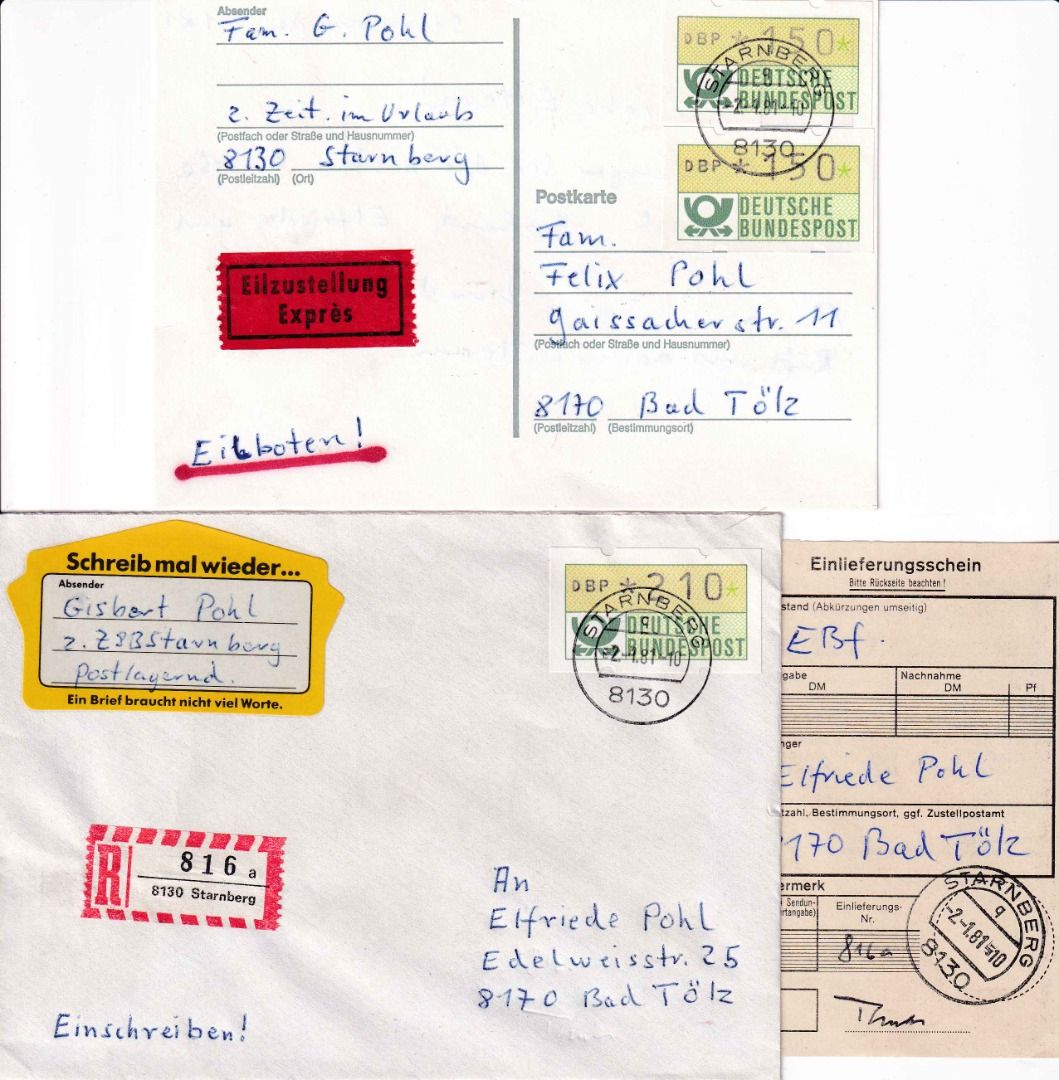 Absender
Fam. G. Pohl
z. Zeit. im Urlaub
(Postfach oder Straße und Hausnummer)
8130 Starnberg
(Postleitzahl) (Ort)
DBP *150*
DEUTSCHE
BUNDESPOST
STARNBERG
q
-2.-1.81-10
8130
DBP *150*
DEUTSCHE
BUNDESPOST
Postkarte
Fam.
Felix Pohl
Gaissacherstr. 11
(Postfach oder Straße und Hausnummer)
8170 Bad Tölz
(Postleitzahl) (Bestimmungsort)
Eilzustellung
Exprès
Eilboten!
Schreib mal wieder...
Absender
Gisbert Pohl
z. ZSBStarnberg
postlagernd.
Ein Brief braucht nicht viel Worte.
DBP *210*
DEUTSCHE
BUNDESPOST
STARNBERG
q
-2.-1.81-10
8130
R
816 a
8130 Starnberg
An
Elfriede Pohl
Edelweisstr. 25
8170 Bad Tölz
Einschreiben!
Einlieferungsschein
Bitte Rückseite beachten!
stand (Abkürzungen umseitig)
EBf.
gabe
DM
Nachnahme
DM
Pf
nger
Elfriede Pohl
tzahl, Bestimmungsort, ggf. Zustellpostamt
8170 Bad Tölz
ermerk
Sendun-
ertangabe)
Einlieferungs-
Nr.
816a
STARNBERG
q
-2.-1.81-10
8130